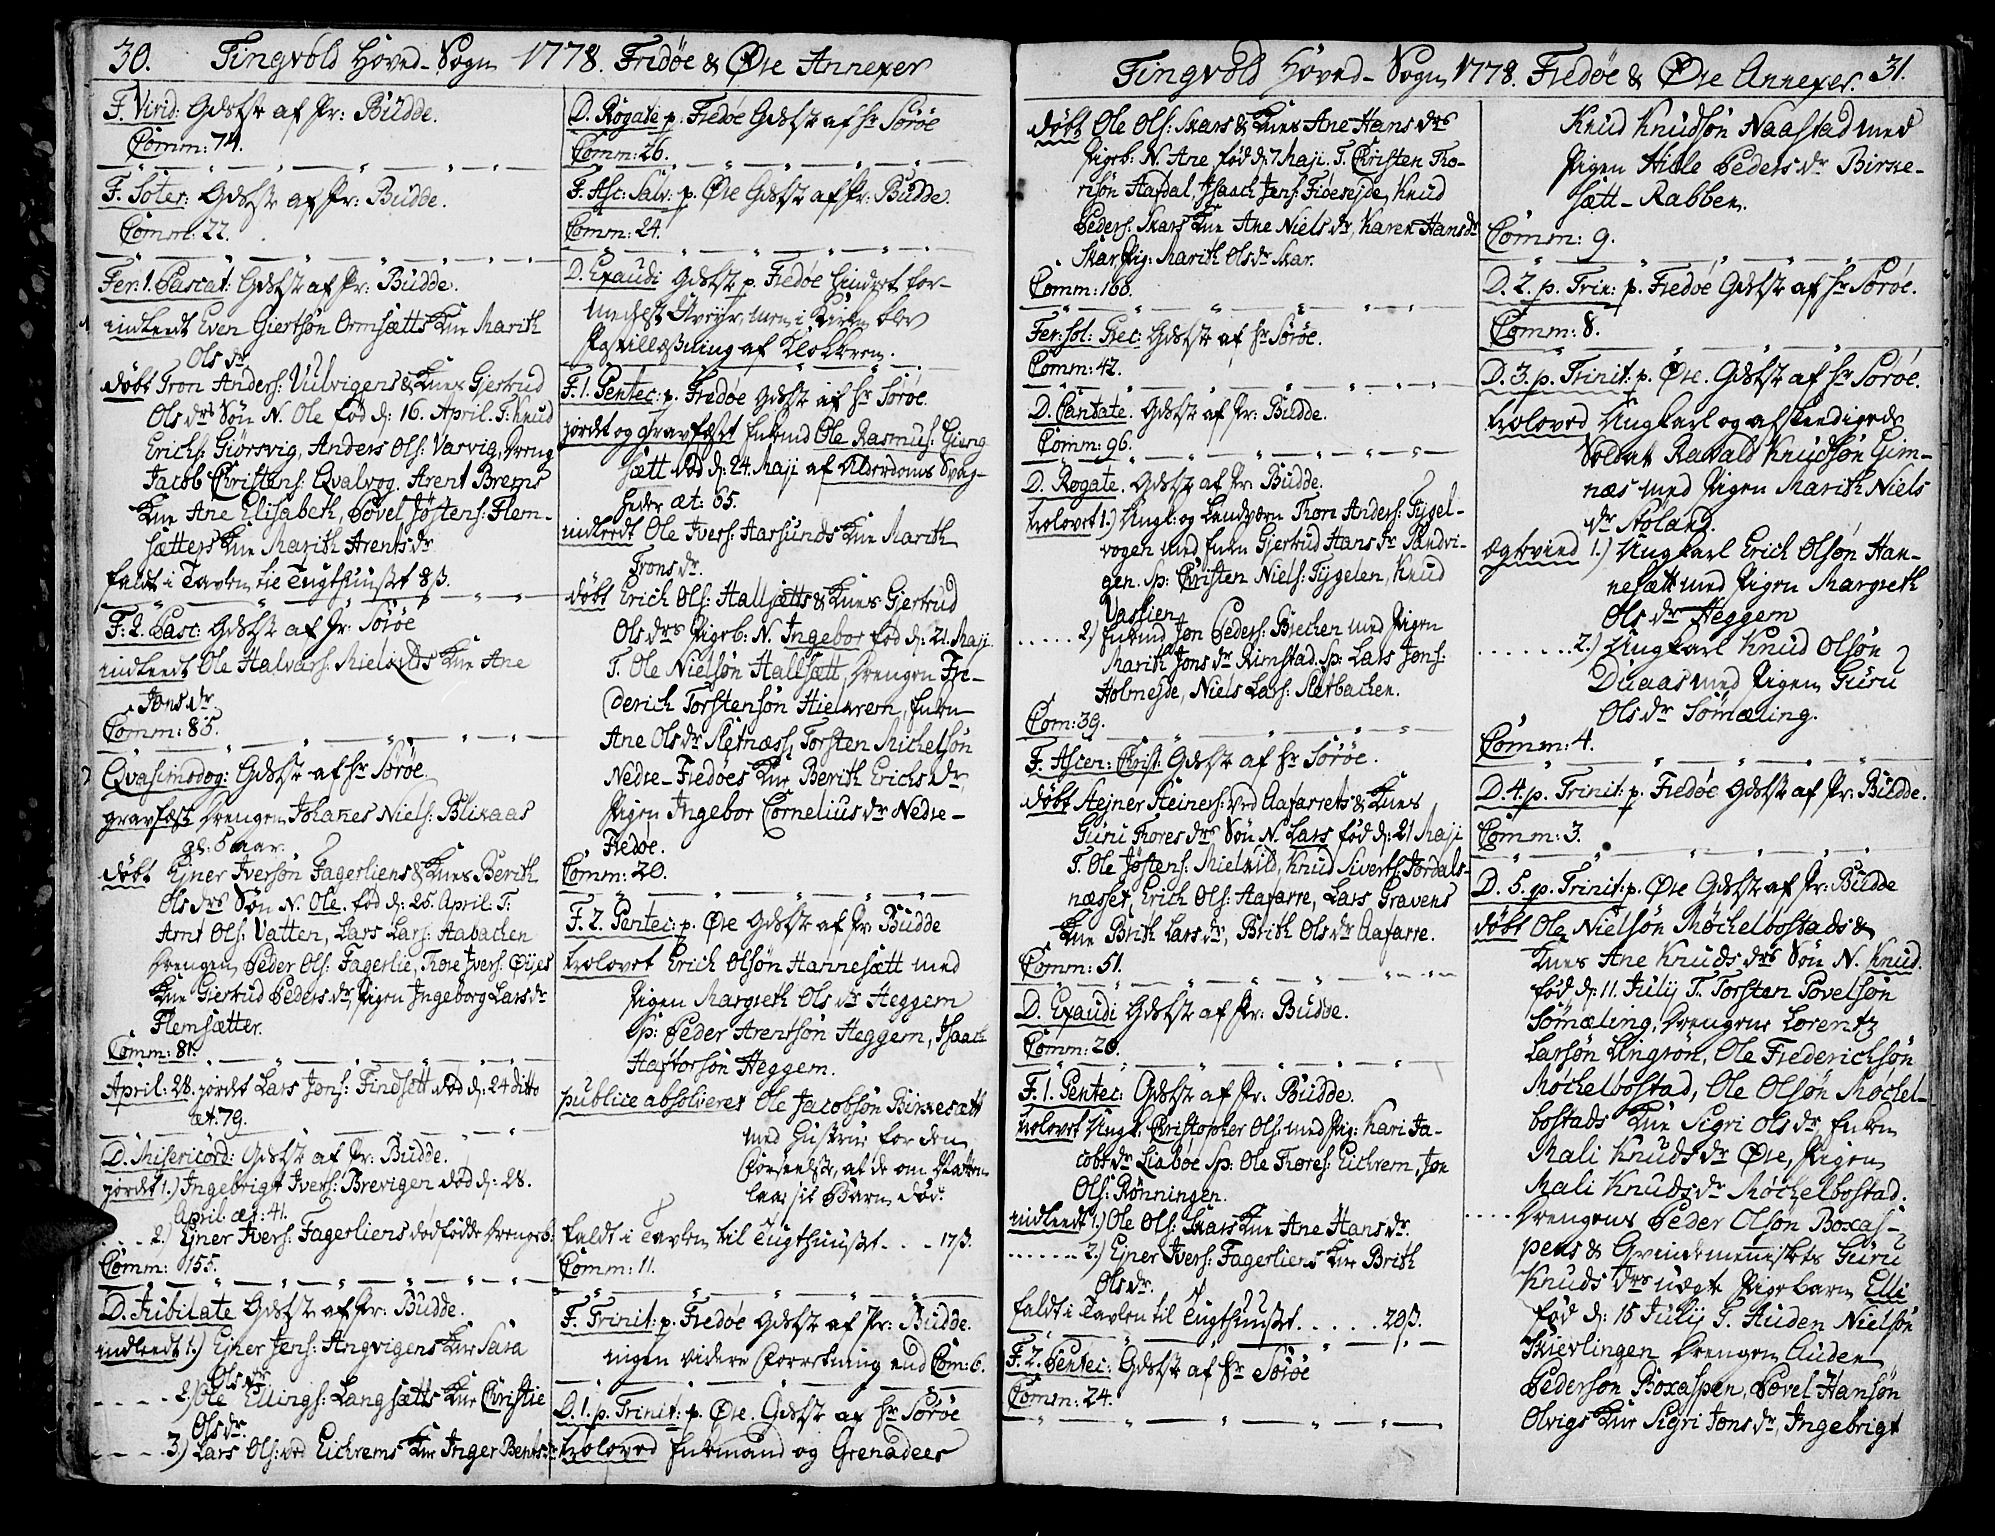 30. Tingvold Hoved-Sogn 1778. Fredøe & Øre Annexer
F. Virid: Gdstst af Pr: Budde.
Comm: 74.
F. Soter: Gdstst af Pr: Budde.
Comm: 22.
Fer: 1. Pascat: Gdstst af Pr: Budde.
indleedt Even Giertsøn Ormsætts Kne Marith
Ols dr
døbt Tron Anders: Vulvigens & Knes Gjertrud
Ols drs Søn N. Ole fød d: 16. April. T: Knud
Erichs: Giørsvig, Anders Ols: Vaavig, Dreng
Jacob Christens: Qvalvog. Arent Brems
Kne Ane Elisabeth, Povel Jøstens: Flem-
sætters Kne Marith Arents dr
faldt i Tavlen til Tugthuuset 8 ß.
F: 2. Pasc: Gdstst af Hr. Sørøe
indleedt Ole Halvars: Mielvilds Kne Ane
Jons dr
Comm: 85.
Qvasimodog: Gdstst af Hr Sørøe.
gravfæst Drengen Johanes Niels: Blikaas
gl: 5 aar.
døbt Ejner Iversøn Fagerliens & Knes Berith
Ols drs Søn N. Ole. fød d: 25. April. T:
Arnt Ols: Vatten, Lars Lars: Aabachen
Drengen Peder Ols: Fagerlie, Thore Ivers: Øijes
Kne Giertrud Peders dr, Pigen Ingeborg Lars dr
Flemsætter.
Comm: 81.
April: 28. jordet Lars Jons: Findsett død d: 24 ditto
æt. 79.
D. Misericord: Gdstst af Pr: Budde.
jordet 1.) Ingebrigt Ivers: Brevigen død d: 28.
April. æt: 41.
2.) Ejner Ivers: Fagerliens dødfødde Drengeb:
Comm: 155.
D. Jubilate Gdstst af Pr: Budde.
indleedt 1.) Ejner Jens: Angvigens Kne Sara
Ols dr.
2.) Ole Ellings: Langsætts Kne Christie
Ols dr.
3.) Lars Ols: ved Eichrems Kne Inger Bents dr
D. Rogate p. Fredøe Gdstst af Hr Sørøe
Comm: 26.
F. Asc: Salv: p. Øre Gdstst af Pr: Budde.
Comm: 24.
D. Exaudi Gdstst p. Fredøe hindret for-
Postillæsning af Klokkeren.
F. 1. Pentec: p. Fredøe Gdstst af Hr Sørøe.
jordet og gravfæst Enkemd Ole Rasmus: Gieng
sætt død d: 24. Maji af Alderdoms Svag-
heder æt: 65.
indleedt Ole Ivers: Aarsunds Kne Marith
Trons dr.
døbt Erich Ols: Hallsætts & Knes Gjertrud
Ols drs Pigeb: N. Ingebor fød d: 21. Maji
T. Ole Nielsøn Hallsætt, Drengen Fri-
derich Torstensøn Hielkrem, Enken
Ane Ols dr Sletnæss, Torsten Michelsøn
Nedre-Fredøes Kne Berith Erichs dr,
Pigen Ingebor Cornelius dr Nedre-
Fredøe.
Comm: 20.
F. 2. Pentec: p. Øre Gdstst af Pr Budde
trolovet Erich Olsøn Hannesætt med
Pigen Margreth Ols dr Heggem
Sp: Peder Arentsøn Heggem, Isaach
Haftorsøn Heggem.
publice absolveret Ole Jacobsøn Birkesætt
med Hustrue for den
Forseelse, at de om Natten
laae sit Barn død.
faldt i Tavlen til Tugthuuset . . . 17 ß.
Comm: 11.
F. Trinit: p. Fredøe Gdstst af Pr: Budde.
ingen videre Forretning end Com: 6.
D. 1. p. Trinit: p. Øre. Gdstst af Hr Sørøe
troloved Enkemand og Grenadeer
Tingvold Hoved-Sogn 1778. Fredøe & Øre Annexer. 31.
døbt Ole Ols: Skars & Knes Ane Hans drs
Pigeb: N. Ane fød d: 7 Maji. T. Christen Tho-
risøn Aafdal, Isaach Jens: Fideresjde, Knud
Peders: Skars Kne Ane Niels dr, Karen Hans dr
Skar Pig: Marith Ols dr Skar.
Comm: 166.
Fer: sol: Prec: Gdstst af Hr Sørøe.
Comm: 42.
D. Cantate. Gdstst af Pr: Budde.
Comm: 96.
D. Rogate. Gdstst af Pr: Budde.
trolovet 1.) Ungk: og Landværn Thron Anders: Tygel-
vogen med Enken Gjertrud Hans dr Sandvi-
gen. Sp: Christen Niels: Tygelen, Knud
Vaslien
2.) Enkemd Jon Peders: Brechen med Pigen
Marith Jons dr Rimstad. Sp: Lars Jons:
Holmejde, Niels Lars: Sletbachen.
Com: 39.
F. Ascen: Christ: Gdstst af Hr Sørøe.
døbt Stejner Steiners: ved Aafarrets & Knes
Guru Thores drs Søn N. Lars fød d: 21 Maji
T. Ole Jøstens: Mielvild, Knud Siverts: Jordals-
næsset, Erich Ols: Aafarre, Lars Gravens
Kne Brith Lars dr, Brith Ols dr Aafarre.
Comm: 51.
D. Exaudi Gdstst af Pr: Budde.
Comm: 20.
F. 1. Pentec: Gdstst af Pr: Budde.
trolovet Ungk: Christopher Ols: med Pig: Kari Ja-
cobs dr Liaboe Sp: Ole Thores: Eichrem, Jon
Ols: Rønningen.
indleedt 1.) Ole Ols: Skars Kne Ane Hans dr.
2.) Ejner Ivers: Fagerliens Kne Brith
Ols dr.
faldt i Tavlen til Tugthuuset . . . . . 29 ß.
F. 2. Pentec: Gdstst af Hr Sørøe
Comm: 24.
Knud Knudsøn Naastad med
Pigen Hille Peders dr Birke-
sætt-Rabben.
Comm: 9.
D. 2. p. Trin: p. Fredøe Gdstst af Hr Sørøe.
Comm: 8.
D. 3. p. Trinit: p. Øre. Gdstst af Hr Sørøe.
troloved Ungkarl og afskeediget
Soldat Ravald Knudsøn Gim-
næs med Pigen Marith Niels
dr Støland.
Ægteviod 1.) Ungkarl Erich Olsøn Han-
nesætt med Pigen Margreth
Ols dr Heggem
2.) Ungkarl Knud Olsøn
Duaas med Pigen Guru
Ols dr Sømæling.
Comm: 4.
D. 4. p. Trinit: p. Fredøe Gdstst af Pr: Budde.
Comm: 3.
D. 5. p. Trinit: p. Øre Gdstst af Pr: Budde
døbt Ole Nielsøn Møchelbostads &
Knes Ane Knuds drs Søn N. Knud.
fød d: 11. Julij T. Torsten Povelsøn
Sømæling, Drengene Lorentz
Larsøn Lingvøn, Ole Frederichsøn
Møchelbostad, Ole Olsøn Møchel-
bostads Kne Sigri Ols dr Enken
Mali Knuds dr Øre, Pigen
Mali Knuds dr Møchelbostad.
Drengens Peder Olsøn Boxas-
pens & Qvindemenniskes Guru
Knuds drs uægte Pigebarn Elli
fød d: 15 Julij T. Auden Nielsøn
Skievlingen Drengen Auden
Pedersøn Boxaspen, Povel Hansøn
Olvigs Kne Sigri Jons dr, Ingebrigt